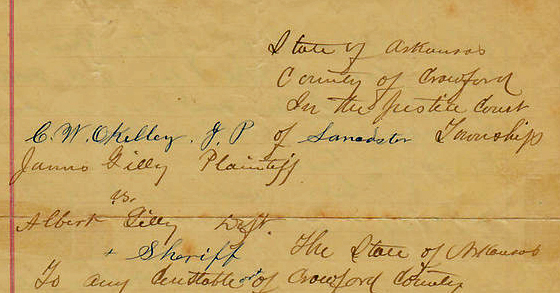 State of Arkansas
County of Crawford
In the Justice Court
C. W. OKelley. J. P. of Lancaster Township
James Gilly Plaintiff
vs.
Albert Gilly Deft.
+ Sheriff The State of Arkansas
To any Constable or of Crawford County